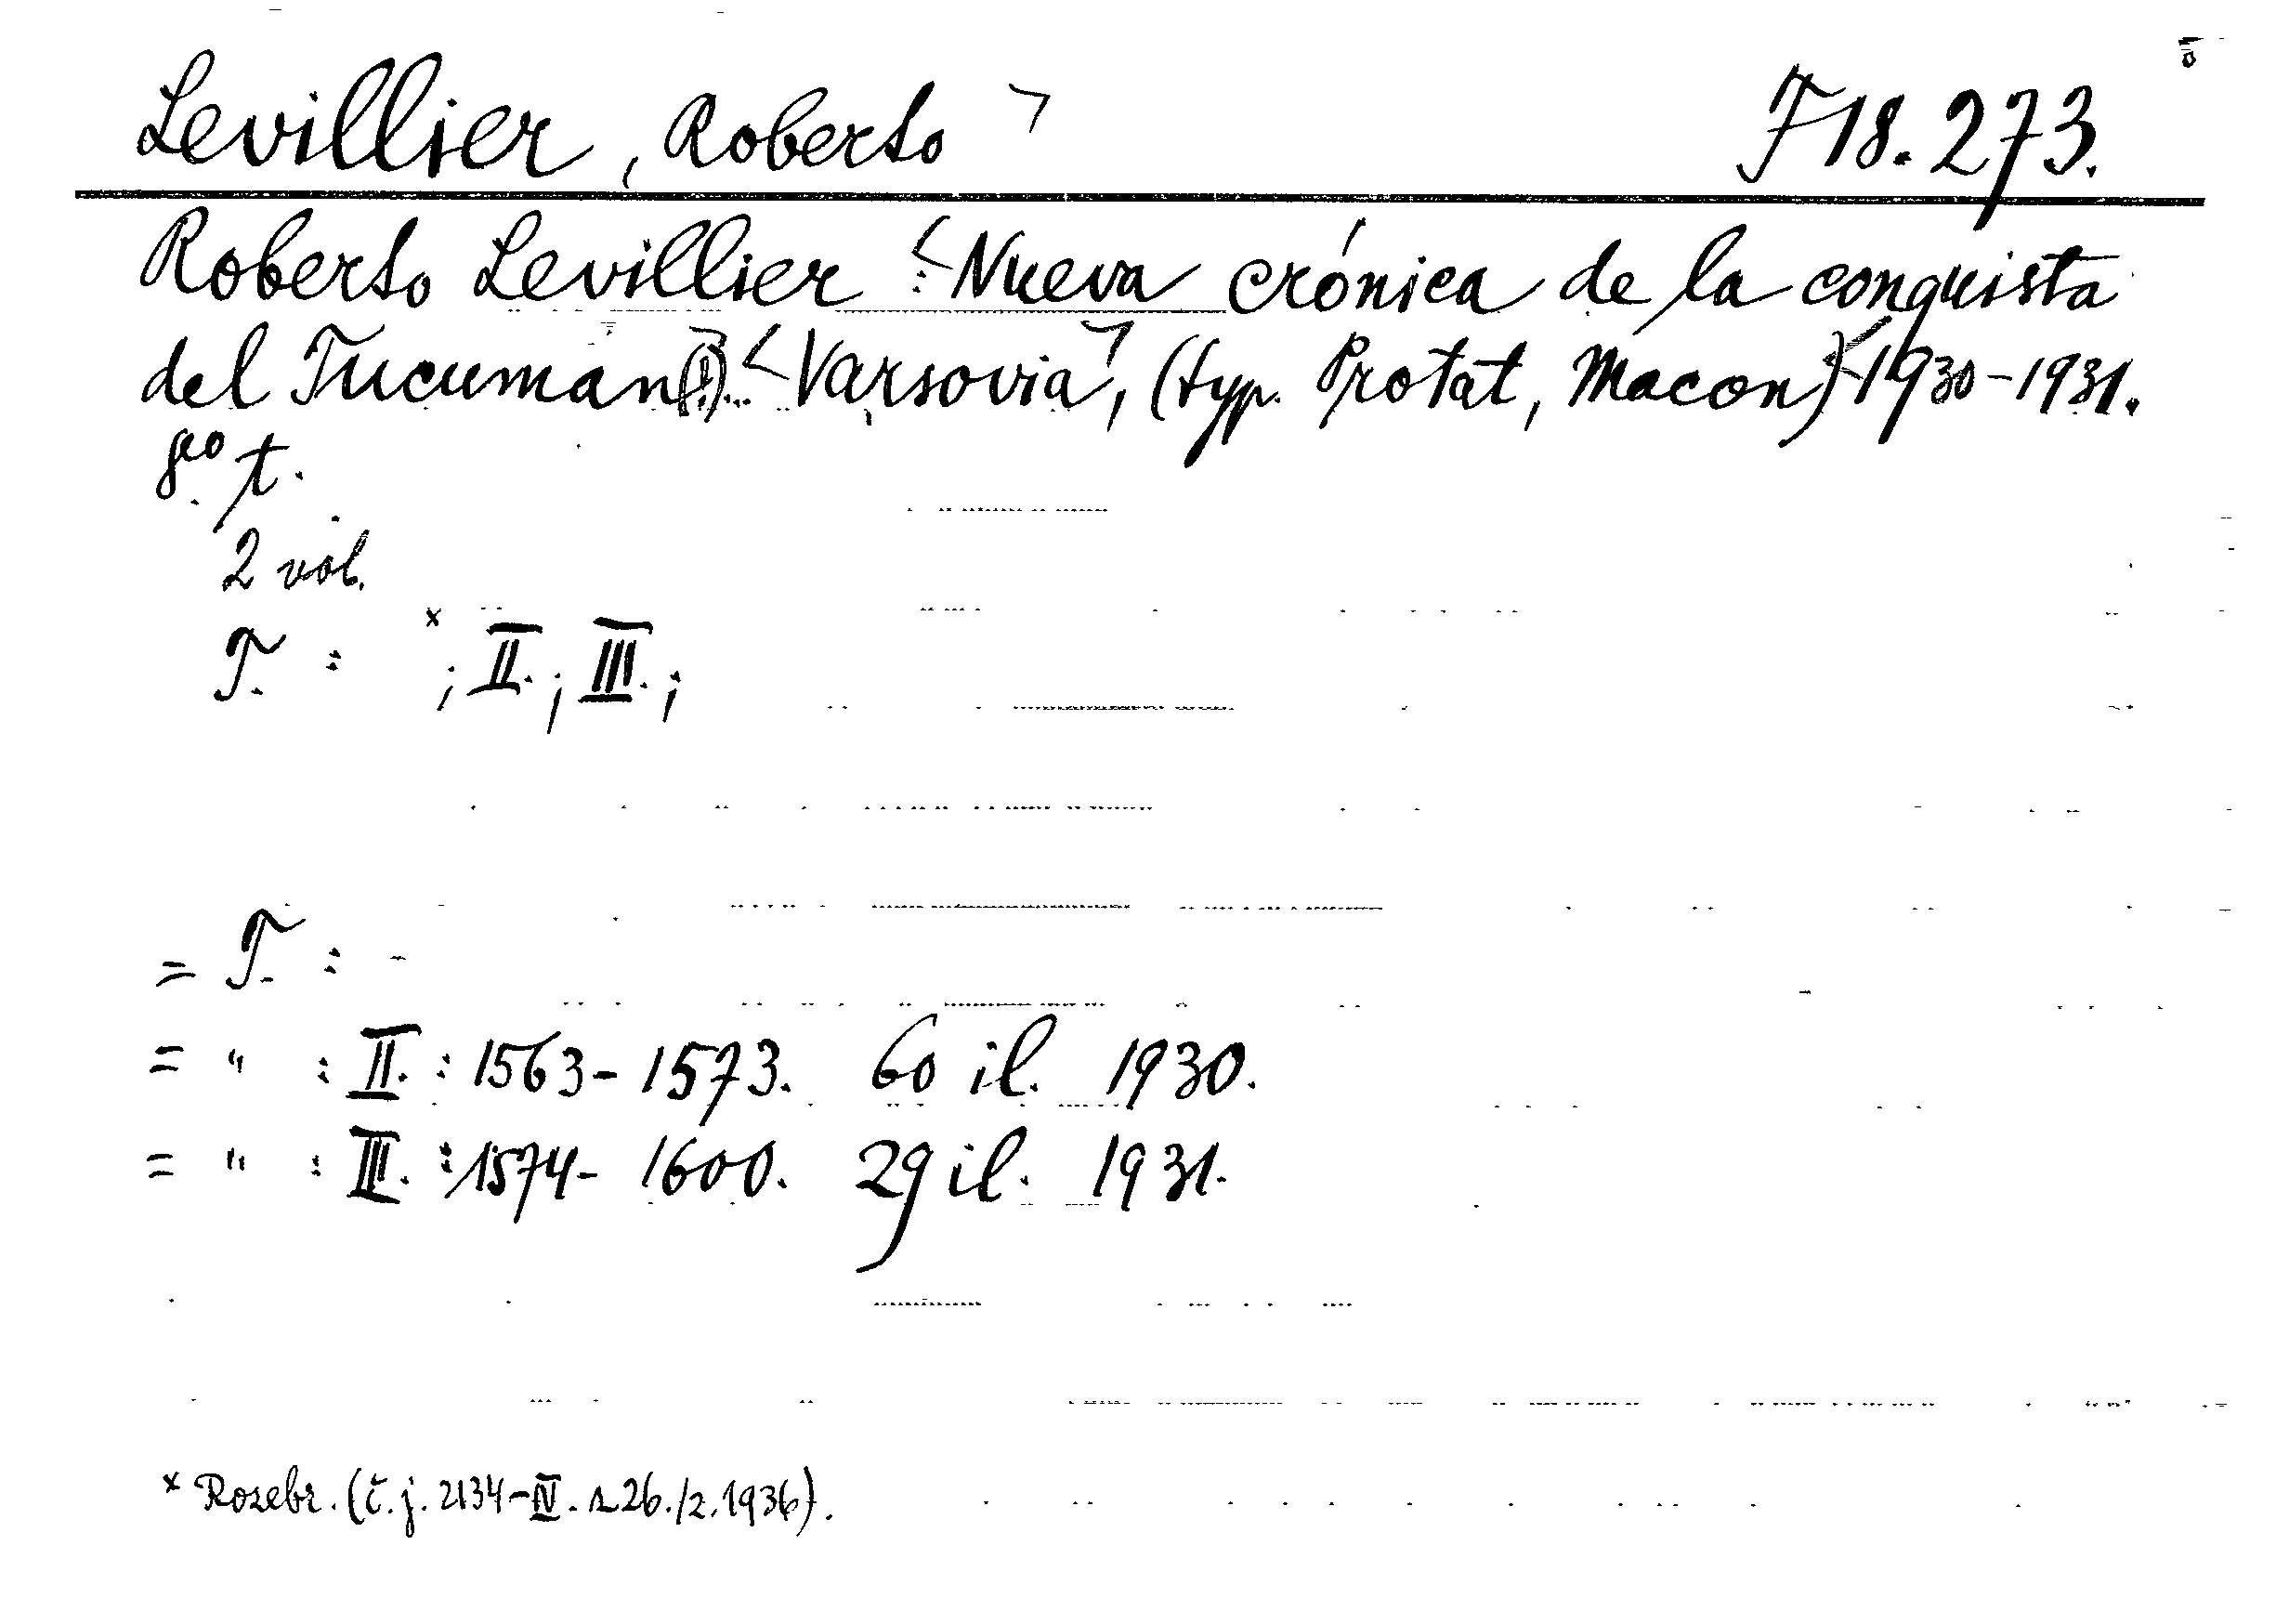 Levillier, Roberto F18.273.
Roberto Levillier : Nueva crónica de la conquista
del Tucumán(!).. Varsovia, (typ. Protat, Macon) 1930-1931.
8ºo t.
2 vol.
T. : x ; II. ; III. ;
= T. : -
= " : II. : 1563-1573. 60 il. 1930.
= " : III. : 1574-1600. 29 il. 1931.
x Rozebr. (č.j. 2134-IV. z 26./2.1936).